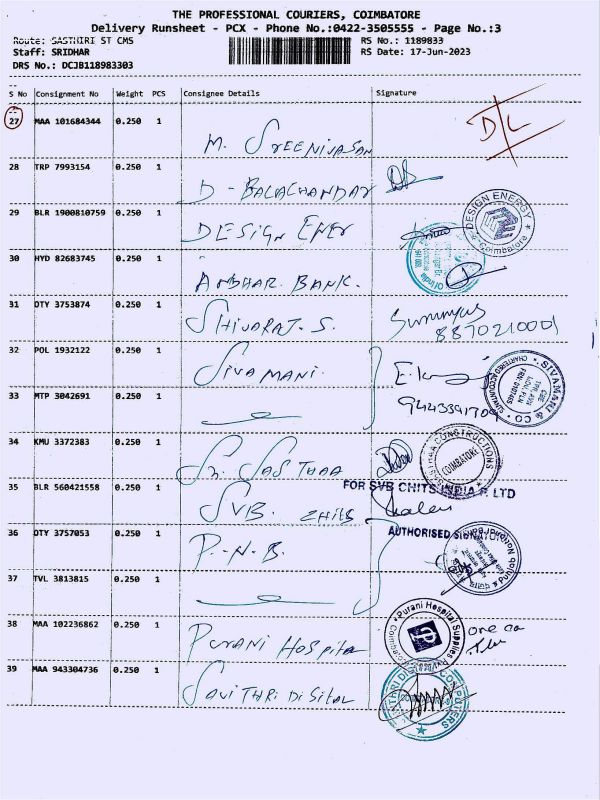 THE PROFESSIONAL COURIERS, COIMBATORE
Delivery Runsheet - PCX - Phone No.:0422-3505555 - Page No.:3
Route: SASTHIRI ST CMS RS No.: 1189833
Staff: SRIDHAR RS Date: 17-Jun-2023
DRS No.: DCJB118983303
S No Consignment No Weight PCS Consignee Details Signature
27 MAA 101684344 0.250 1 D/L
M. SREENIVASAN
28 TRP 7993154 0.250 1
D - BALACHANDAR
29 BLR 1900810759 0.250 1
DESIGN ENER
DESIGN ENERGY
Coimbatore
30 HYD 82683745 0.250 1
ANDHAR. BANK.
31 DTY 3753874 0.250 1
SHIVARAJ. S.
8870210001
32 POL 1932122 0.250 1
SIVAMANI.
SIVAMANI & CO
CHARTERED ACCOUNTANTS
33 MTP 3042691 0.250 1
34 KMU 3372383 0.250 1
Sri. SASTHAA
CONSTRUCTIONS
COIMBATORE
35 BLR 560421558 0.250 1 FOR SVB CHITS INDIA P. LTD
SVB. CHITS
36 DTY 3757053 0.250 1 AUTHORISED SIGNATORY
P.N.B.
Punjab National Bank
37 TVL 3813815 0.250 1
38 MAA 102236862 0.250 1
PURANI HOSPITAL
Purani Hospital Supplies
39 MAA 943304736 0.250 1
SAVITHRI DISITAL
COMPUTERS